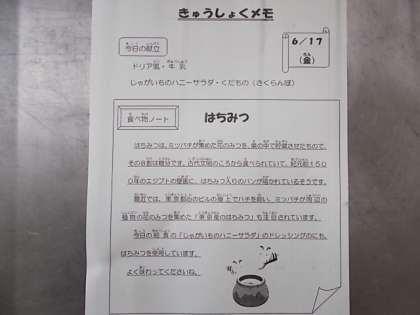 きゅうしょくメモ
6/17
(金)
今日の献立
ドリア風・牛乳
じゃがいものハニーサラダ・くだもの(さくらんぼ)
食べ物ノート
はちみつ
はちみつは、ミツバチが集めた花のみつを、巣の中で貯蔵させたもので、
その8割は糖分です。古代文明のころから食べられていて、紀元前150
0年のエジプトの壁画に、はちみつ入りのパンが描かれているそうです。
最近では、東京都心のビルの屋上でハチを飼い、ミツバチが周辺の
植物の花のみつを集めた「東京産のはちみつ」も注目されています。
今日の給食の「じゃがいものハニーサラダ」のドレッシングのにも、
はちみつを使用しています。
よく味わってくださいね。